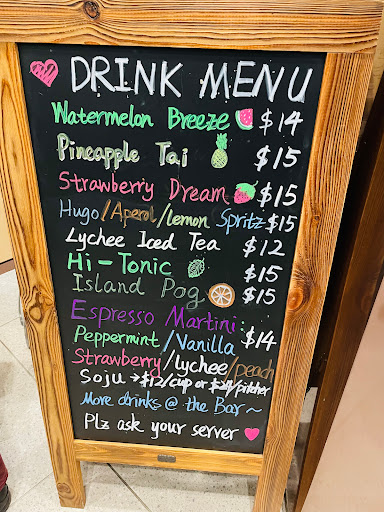 DRINK MENU
Watermelon Breeze $14
Pineapple Tai $15
Strawberry Dream $15
Hugo/Aperol/lemon Spritz $15
Lychee Iced Tea $12
Hi-Tonic $15
Island Pog $15
Espresso Martini:
Peppermint/Vanilla $14
Strawberry/lychee/peach
Soju → $12/cup or $28/pitcher
More drinks @ the Bar ~
Plz ask your server